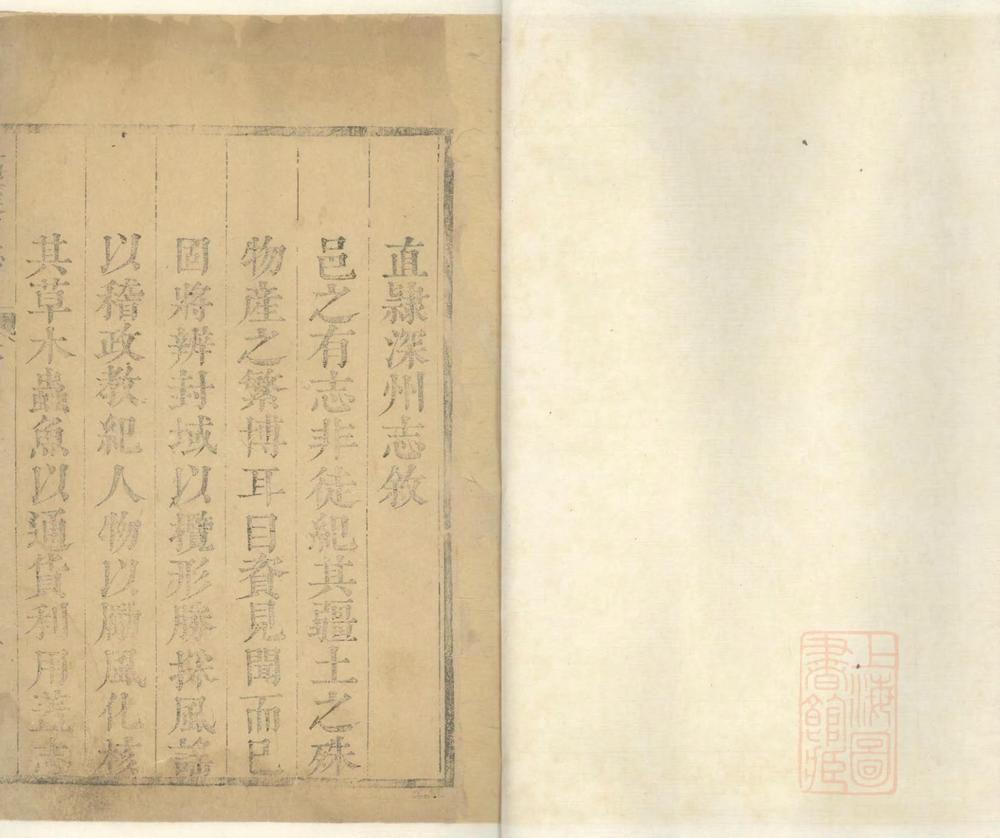 直隸深州志敘
邑之有志非徒紀其疆土之殊
物產之繁博耳目資見聞而已
固將辨封域以攬形勝採風謠
以稽政教紀人物以勵風化核
其草木蟲魚以通貨利用蓋志
上海圖
書館藏